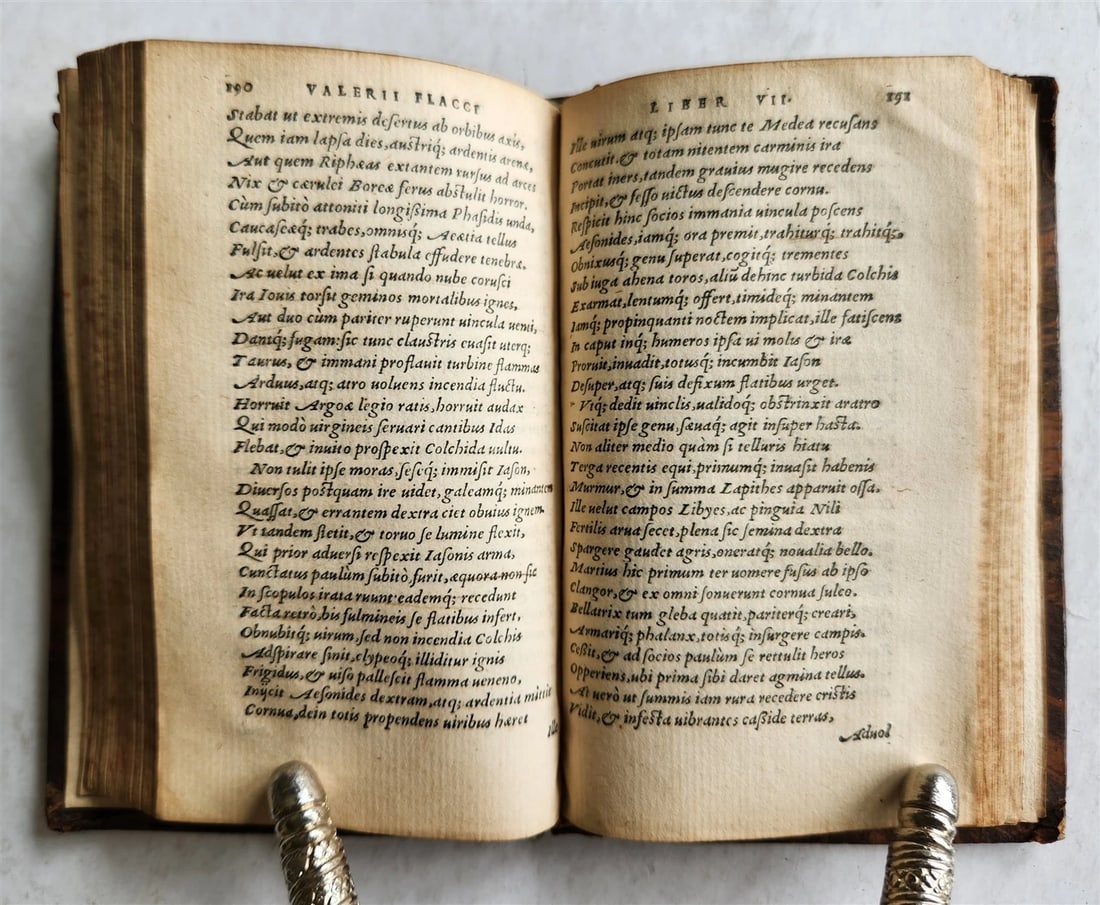 190 VALERII FLACCI
Stabat ut extremis desertus ab orbibus axis,
Quem iam lapsa dies, austriq; ardentis arenæ,
Aut quem Riphæas extantem rursus ad arces
Nix & cærulei Boreæ ferus abstulit horror.
Cùm subitò attoniti longißima Phasidis unda,
Caucaseæq; trabes, omnisq; Aeætia tellus
Fulsit, & ardentes stabula effudere tenebræ.
Ac uelut ex ima si quando nube corusci
Ira Iouis torsit geminos mortalibus ignes,
Aut duo cùm pariter ruperunt uincula uenti,
Dantq; fugam: sic tunc claustris euasit uterq;
Taurus, & immani proflauit turbine flammas
Arduus, atq; atro uoluens incendia fluctu.
Horruit Argoæ legio ratis, horruit audax
Qui modò uirgineis seruari cantibus Idas
Flebat, & inuito prospexit Colchida uultu.
Non tulit ipse moras, seseq; immisit Iason,
Diuersos postquam ire uidet, galeamq; minantem
Quassat, & errantem dextra ciet obuius ignem.
Vt tandem stetit, & toruo se lumine flexit,
Qui prior aduersi respexit Iasonis arma,
Cunctatus paulùm subitò furit, æquora non sic
In scopulos irata ruunt eademq; recedunt
Facta retrò, bis fulmineis se flatibus infert,
Obnubitq; uirum, sed non incendia Colchis
Adspirare sinit, clypeoq; illiditur ignis
Frigidus, & uiso pallescit flamma ueneno,
Inijcit Aesonides dextram, atq; ardentia mittit
Cornua, dein totis propendens uiribus hæret
Ille
LIBER VII. 191
Ille uirum atq; ipsam tunc te Medea recusans
Concutit, & totam nitentem carminis ira
Portat iners, tandem grauius mugire recedens
Incipit, & fesso uictus descendere cornu.
Respicit hinc socios immania uincula poscens
Aesonides, iamq; ora premit, trahiturq́; trahitq́;
Obnixusq; genu superat, cogitq; trementes
Sub iuga ahena toros, aliũ dehinc turbida Colchis
Exarmat, lentumq́; offert, timideq́; minantem
Iamq́; propinquanti noctem implicat, ille fatiscens
In caput inq́; humeros ipsa ui molis & iræ
Proruit, inuadit, totusq́; incumbit Iason
Desuper, atq; suis defixum flatibus urget.
Vtq; dedit uinclis, ualidoq́; obstrinxit aratro
Suscitat ipse genu, sæuaq́; agit insuper hasta.
Non aliter medio quàm si telluris hiatu
Terga recentis equi, primumq́; inuasit habenis
Murmur, & in summa Lapithes apparuit ossa.
Ille uelut campos Libyes, ac pinguia Nili
Fertilis arua secet, plena sic semina dextra
Spargere gaudet agris, oneratq́; noualia bello.
Martius hic primum ter uomere fusus ab ipso
Clangor, & ex omni sonuerunt cornua sulco.
Bellatrix tum gleba quatit, pariterq́; creari,
Armariq́; phalanx, totisq́; insurgere campis.
Ceßit, & ad socios paulùm se rettulit heros
Opperiens, ubi prima sibi daret agmina tellus.
At uerò ut summis iam rura recedere cristis
Vidit, & infesta uibrantes caßide terras,
Aduol